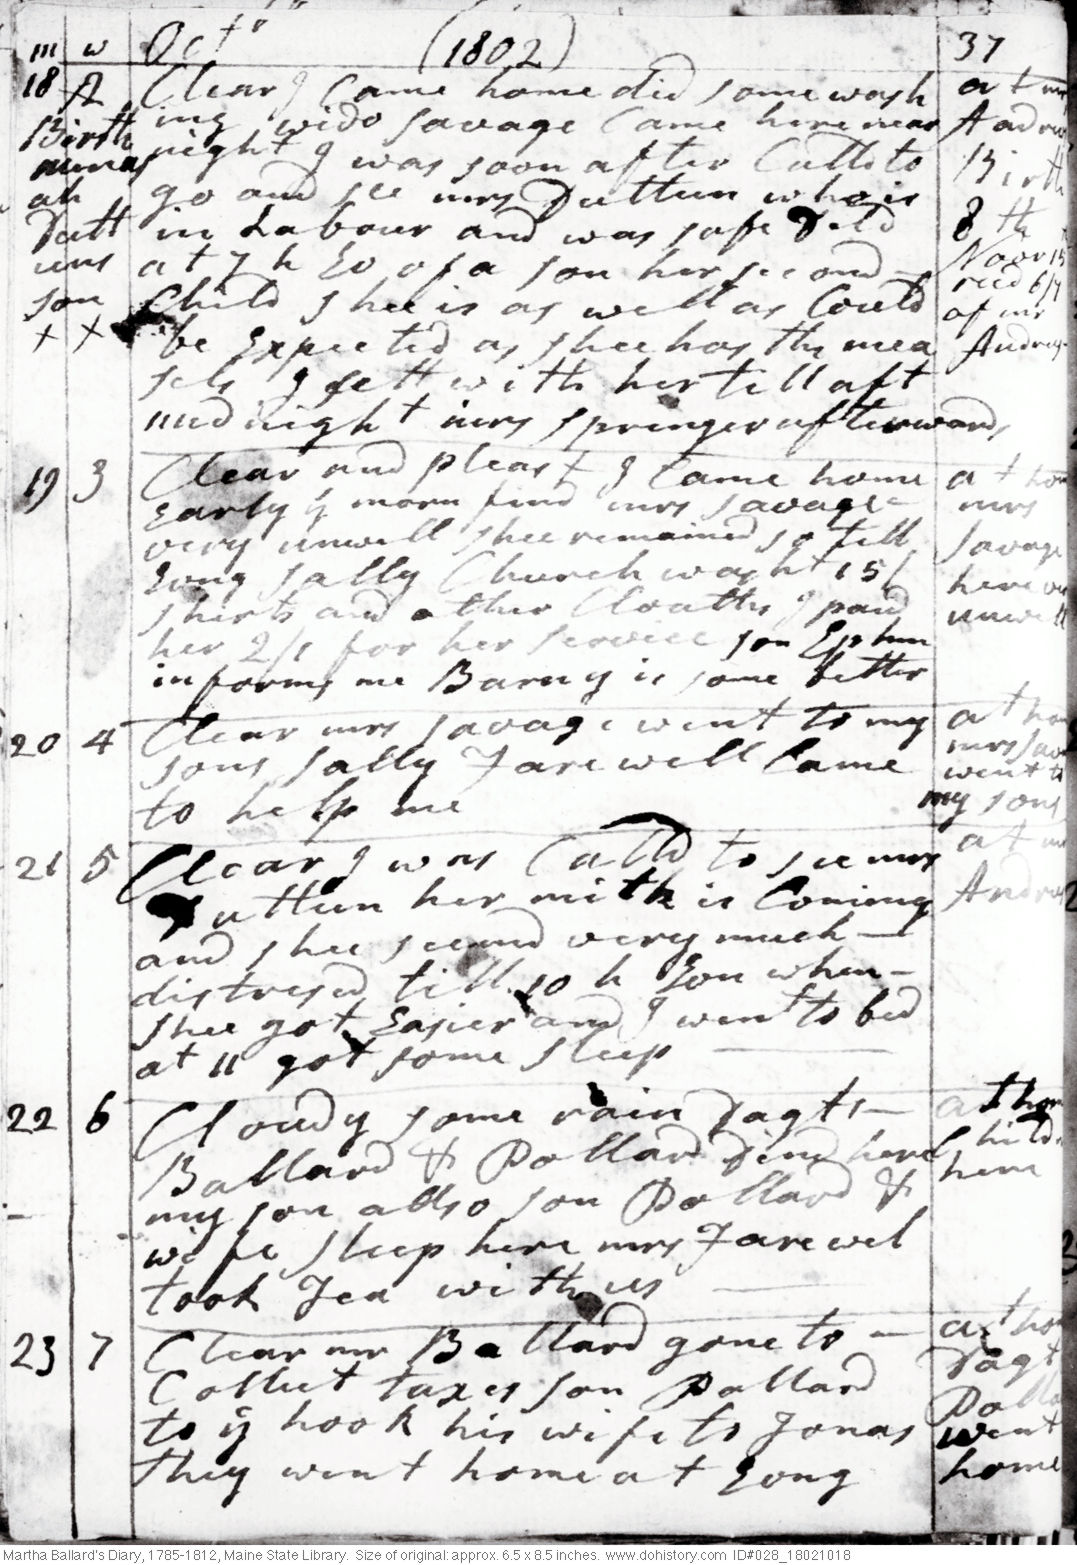 m w Octr (1802) 37
18 A Clear I Came home did some wash at mr
Birth ing wido Savage Came here near Andrws
night I was soon after Calld to Birth
ah go and see mrs Duttun who is
Dutt in Labour and was safe Deld 8th
uns at 7 h Evn of a son her second Novr 15
son Child shee is as well as Could recd 6/
x x be Expected as shee has the mea of mr
sels I sett with her till aft Andrws
midnight mrs springer afterwards
19 3 Clear and pleast I Came home at hom
Early ÿ morn find mrs savage mrs
very unwell shee remained so till savage
Evng sally Church washt 15 here
shirts and other Cloaths I paid unwell
her 2/1 for her service son Ephm
informs me Barny is some better
20 4 Clear mrs savage went to my at hom
sons sally Farewell Came mrs sav
to help me went to
my sons
21 5 Clear I was Calld to see mrs at mr
Duttun her milk is Coming Andrws
and shee seemd very much
distresed till 10 h Evn when
shee got Easier and I went to bed
at 11 got some sleep
22 6 Cloudy some rain Dagts at hom
Ballard & Pollard Dind here Childn
my son allso son Pollard & here
wife sleep here mrs Farewel
took Tea with us
23 7 Clear mr Ballard gone to at hom
Collect taxes son Pollard Dagt
to ÿ hook his wife to Jonas Polla
they went home at Evng went
home
Martha Ballard's Diary, 1785-1812, Maine State Library. Size of original: approx. 6.5 x 8.5 inches. www.dohistory.com ID#028_18021018